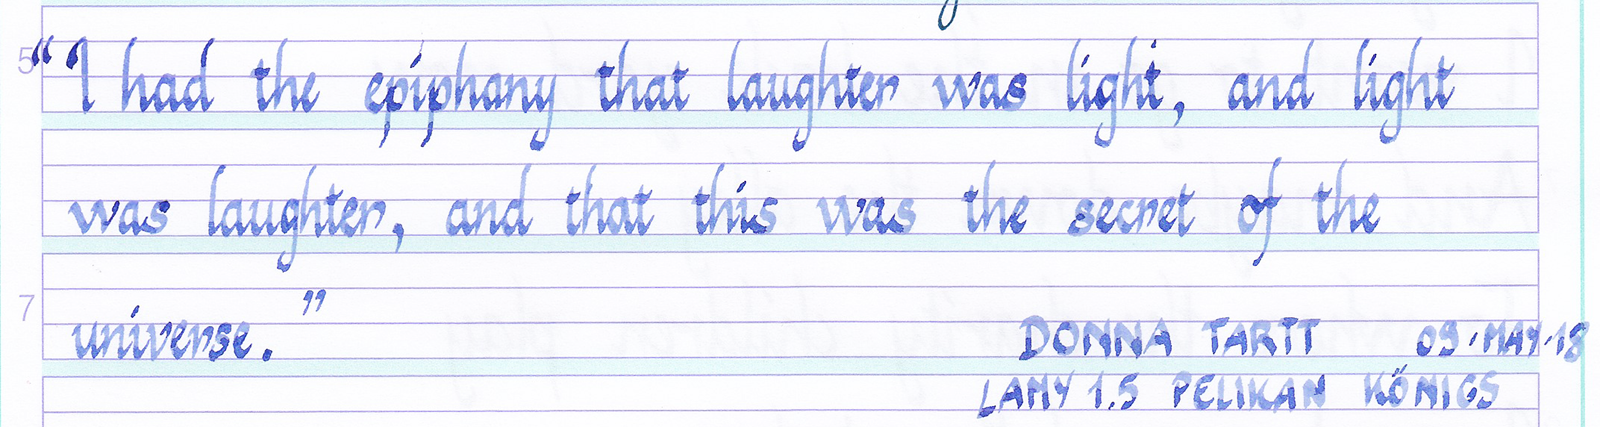 5 “I had the epiphany that laughter was light, and light
was laughter, and that this was the secret of the
7 universe.”
DONNA TARTT 09·MAY·18
LAMY 1.5 PELIKAN KÖNIGS